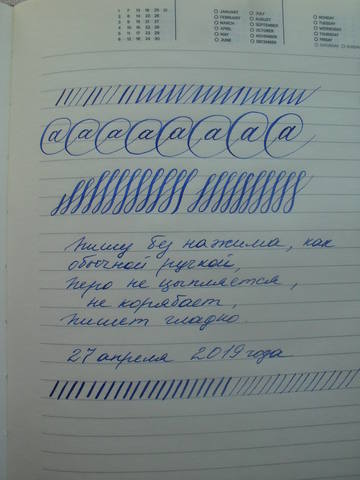 1 7 13 19 25 31
2 8 14 20 26
3 9 15 21 27
4 10 16 22 28
5 11 17 23 29
6 12 18 24 30
JANUARY JULY
FEBRUARY AUGUST
MARCH SEPTEMBER
APRIL OCTOBER
MAY NOVEMBER
JUNE DECEMBER
MONDAY
TUESDAY
WEDNESDAY
THURSDAY
FRIDAY
SATURDAY SUNDAY
а а а а а а а а
Пишу без нажима, как
обычной ручкой,
Перо не цыпляется,
не корябает,
пишет гладко.
27 апреля 2019 года